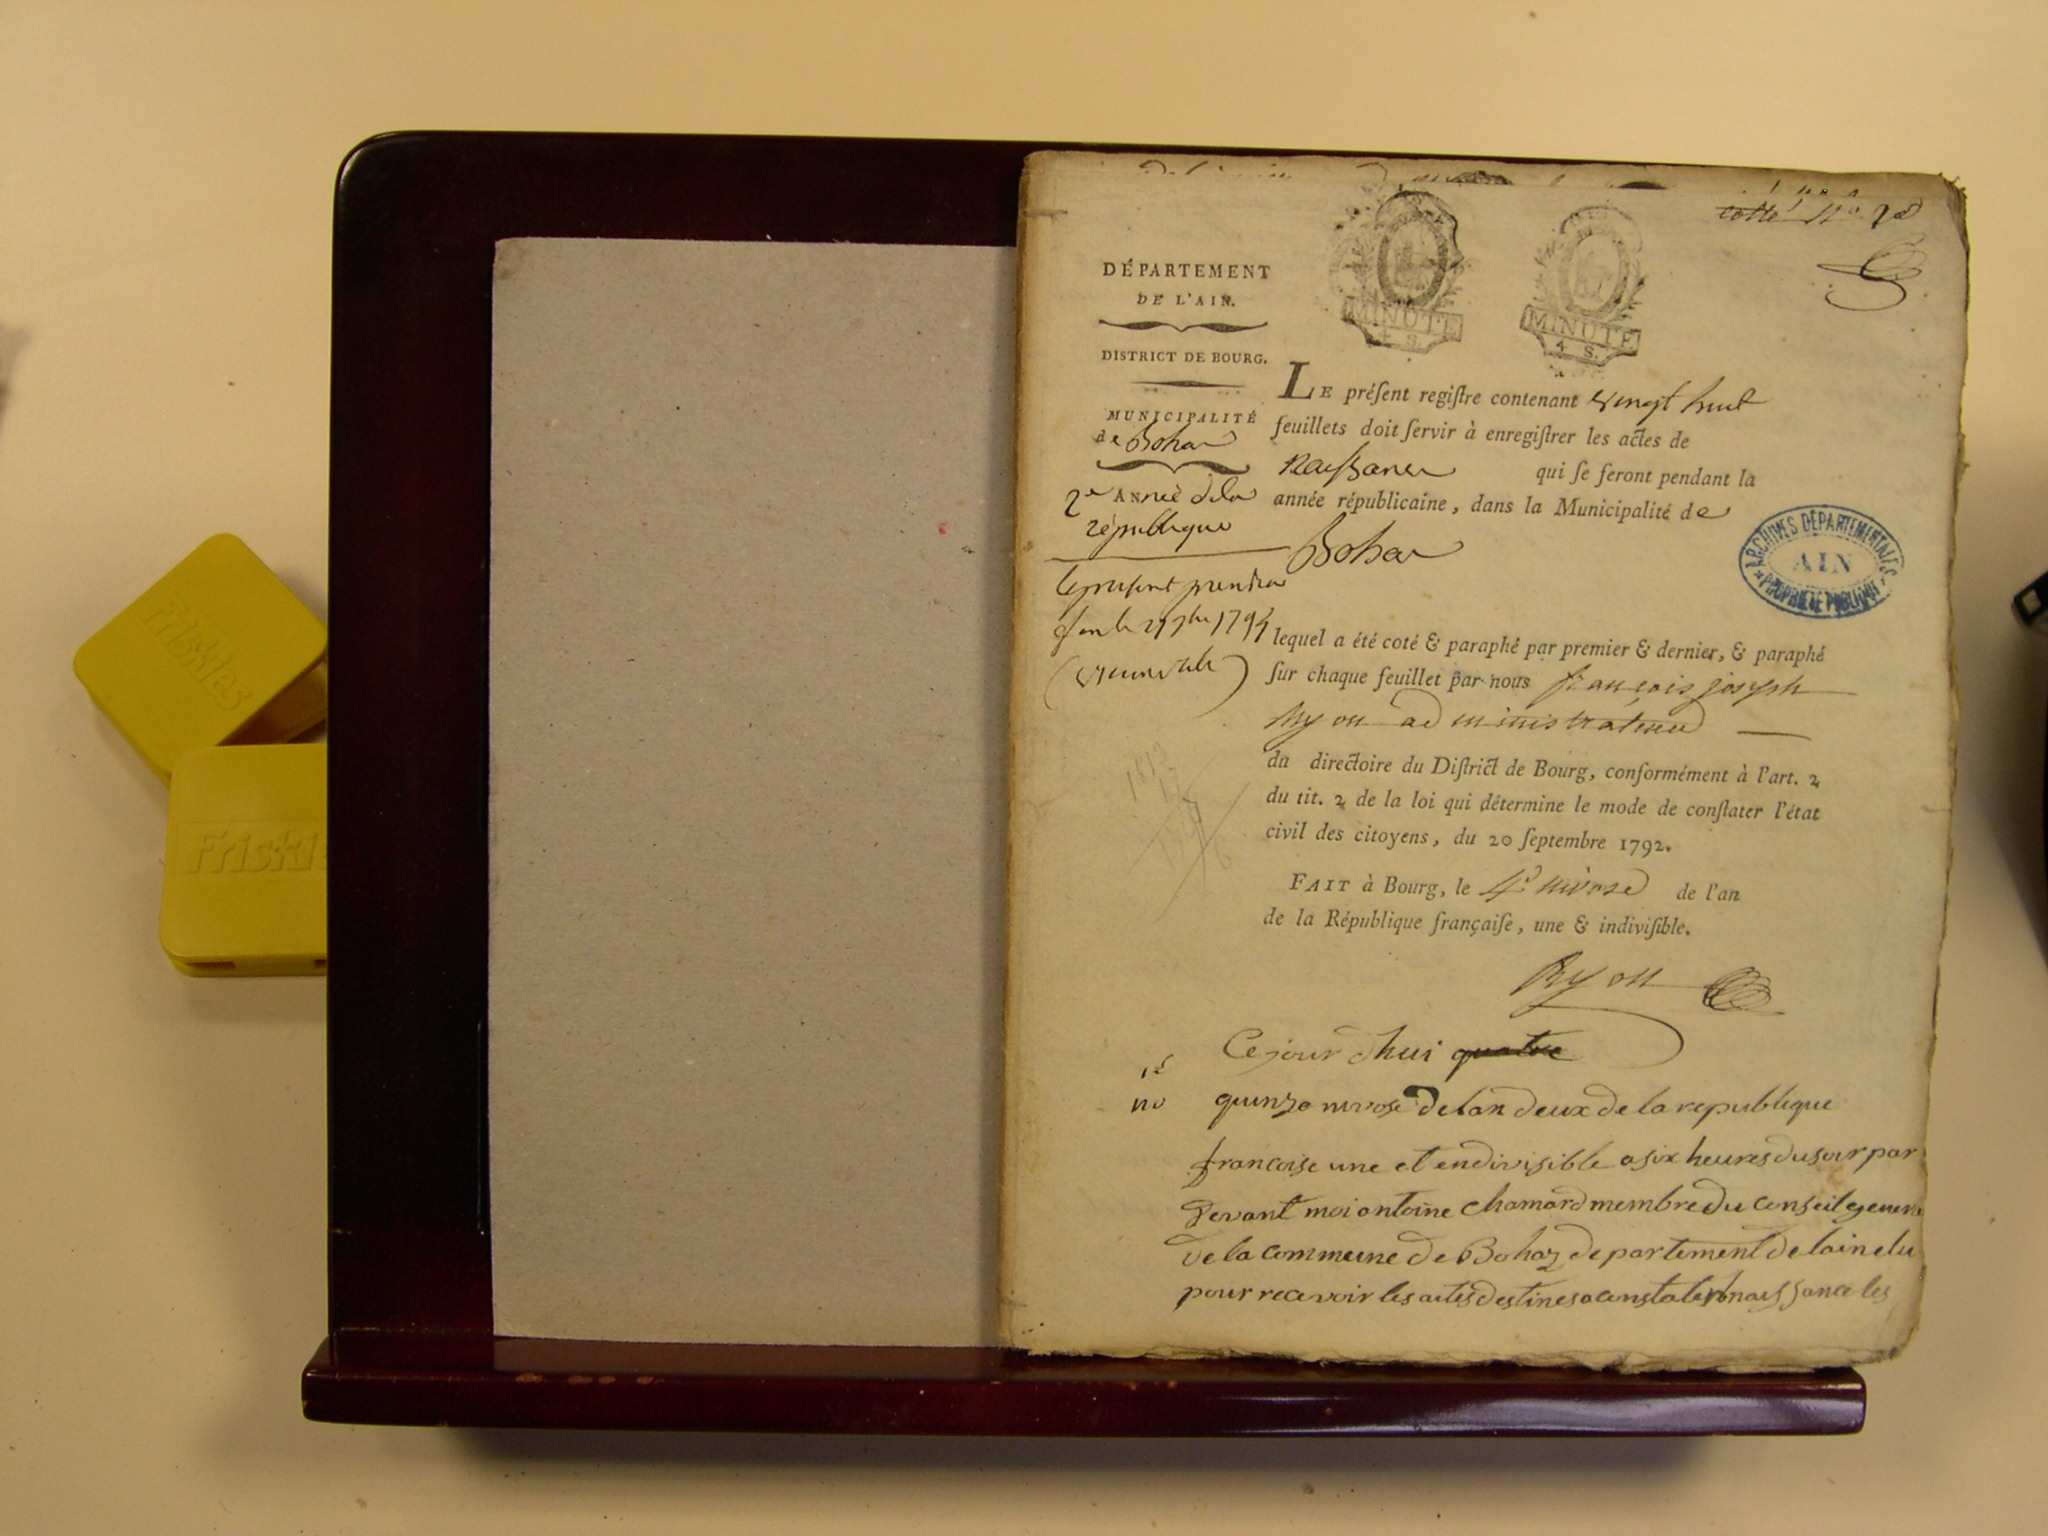 cotté 28
MINUTE
4 S.
MINUTE
4 S.
DÉPARTEMENT
DE L'AIN.
DISTRICT DE BOURG.
MUNICIPALITÉ
de Bohas
2e ANnée de la
république
le présent
LE préſent regiſtre contenant vingt huit
feuillets doit ſervir à enregiſtrer les actes de
naissance qui ſe feront pendant la
année républicaine, dans la Municipalité de
Bohas
ARCHIVES DÉPARTEMENTALES
AIN
PROPRIÉTÉ PUBLIQUE
lequel a été coté & paraphé par premier & dernier, & paraphé
ſur chaque feuillet par nous françois joseph
administrateur
du directoire du Diſtrict de Bourg, conformément à l'art. 2
du tit. 2 de la loi qui détermine le mode de conſtater l'état
civil des citoyens, du 20 ſeptembre 1792.
FAIT à Bourg, le 4e nivose de l'an
de la République françaiſe, une & indiviſible.
Ce jour dhui quatre
quinze nivose de lan deux de la republique
francoise une et endivisible a six heures du soir par
devant moi antoine chamard membre du conseil general
de la commune de Bohaz departement de lain elu
pour recevoir les actes destines a constater naissance les
Friskies
Friskies